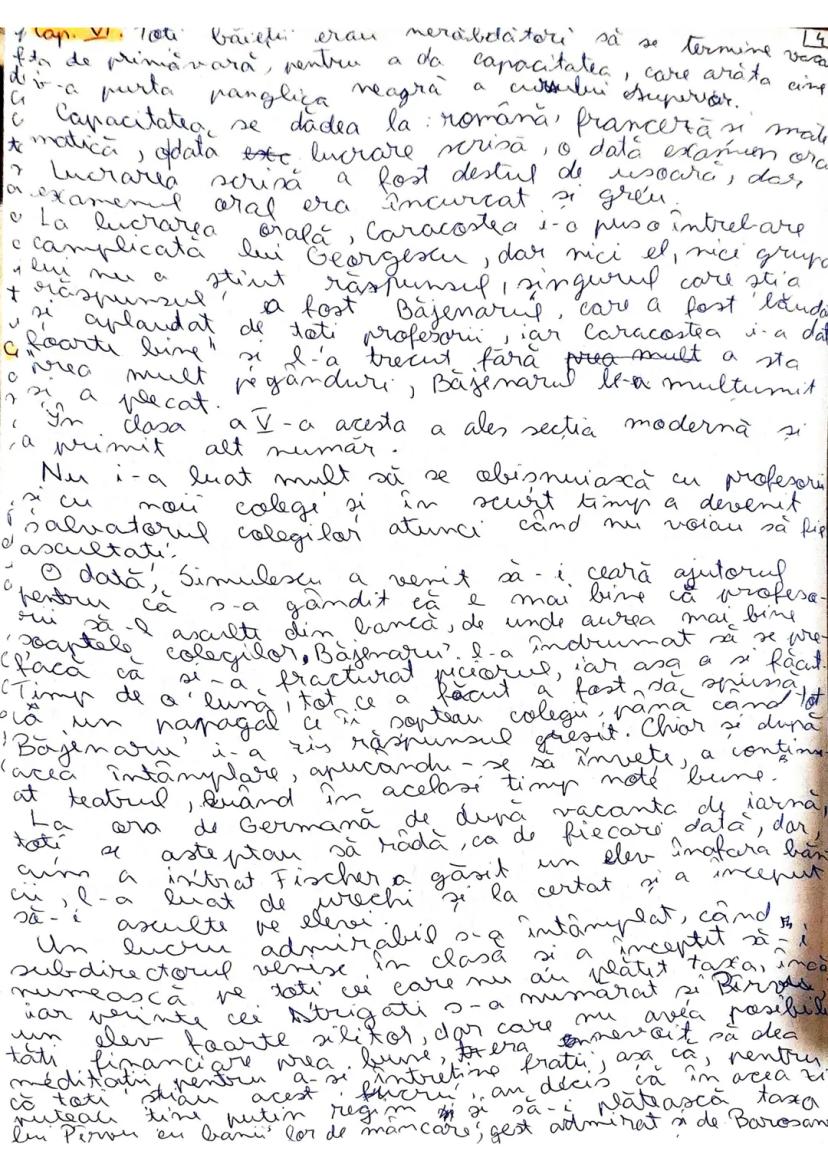 Cap. VI. Toti băieții erau nerăbdători să se termine vaca
ța de primăvară, pentru a da capacitatea, care arăta cine
v-a purta panglica neagră a cursului superior.
Capacitatea se dădea la: română, franceză si mate
matică, odată lucrare scrisă, o dată examen ora
Lucrarea scrisă a fost destul de usoară, dar
examenul oral era încurcat si greu.
La lucrarea orală, Caracostea i-a pus o întrebare
complicată lui Georgescu, dar nici el, nici grupa
lui nu a stiut răspunsul, singurul care stia
răspunsul a fost Băjenarul, care a fost lăuda
si aplaudat de toti profesorii, iar Caracostea i-a dat
"foarte bine" si l-a trecut fără prea mult a sta
prea mult pe gânduri, Băjenarul le-a multumit
si a plecat.
În clasa a V-a acesta a ales secția modernă și
a primit alt număr.
Nu i-a luat mult să se obisnuiască cu profesorii
si cu noii colegi si în scurt timp a devenit
salvatorul colegilor atunci când nu voiau să fie
ascultati.
O dată, Simulescu a venit să-i ceară ajutorul
pentru că s-a gândit că e mai bine că profeso-
rii să-l asculte din bancă, de unde aurea mai bine
soaptele colegilor, Băjenaru l-a îndrumat să se pre-
facă că si-a fracturat piciorul, iar asa a si făcut.
Timp de o lună, tot ce a făcut a fost să spussă tot
că un papagal ce îi sopteau colegii, până când
Băjenaru i-a zis răspunsul gresit. Chiar si după
acea întâmplare, apucandu-se să învete, a continu-
at teatrul, luând în acelasi timp note bune.
La ora de Germană de după vacanta de iarnă,
toti se asteptau să râdă, ca de fiecare dată, dar,
cum a intrat Fischer a găsit un elev înafara băn
cii, l-a luat de urechi și la certat și a început
să-i asculte pe elevi.
Un lucru admirabil s-a întâmplat, când
subdirectorul venise în clasă si a început să-i
numească pe toti cei care nu au plătit taxa, încă
iar printre cei strigati s-a numărat si Pîrvu,
un elev foarte silitor, dar care nu avea posibili
tăti financiare prea bune, era nevoit să dea
méditatii pentru a-si întretine fratii, asa că, pentru
că toti stiau acest lucru, au decis că în acea zi
puteau tine putin regim si să-i plătească taxa
lui Pîrvu cu banii lor de mâncare, gest admirat si de Barosan